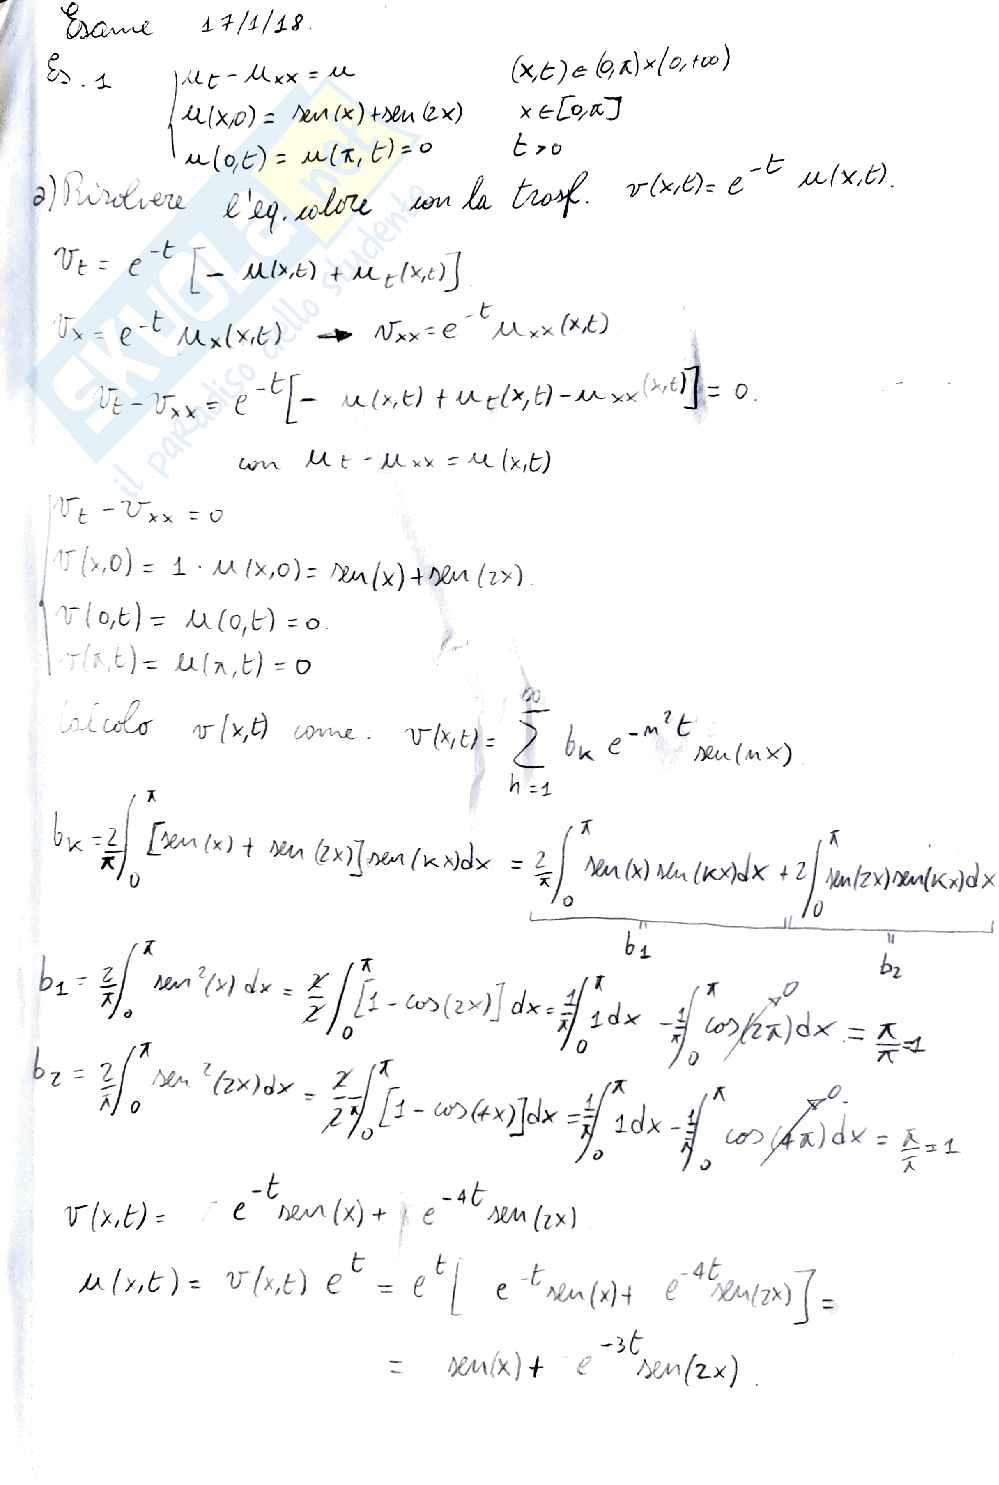 Esame 17/1/18.
Es. 1 { u_t - u_xx = u (x,t) ∈ (0,π)×(0,+∞)
u(x,0) = sen(x)+sen(2x) x ∈ [0,π]
u(0,t) = u(π,t) = 0 t>0
a) Risolvere l'eq. calore con la trasf. v(x,t) = e^{-t} u(x,t).
v_t = e^{-t} [- u(x,t) + u_t(x,t)]
v_x = e^{-t} u_x(x,t) → v_xx = e^{-t} u_xx(x,t)
v_t - v_xx = e^{-t} [- u(x,t) + u_t(x,t) - u_xx(x,t)] = 0.
con u_t - u_xx = u(x,t)
{ v_t - v_xx = 0
v(x,0) = 1 · u(x,0) = sen(x) + sen(2x).
v(0,t) = u(0,t) = 0.
v(π,t) = u(π,t) = 0
Calcolo v(x,t) come. v(x,t) = ∑_{n=1}^{∞} b_k e^{-n² t} sen(nx)
b_k = 2/π ∫_0^π [sen(x) + sen(2x)] sen(kx)dx = 2/π ∫_0^π sen(x) sen(kx)dx + 2 ∫_0^π sen(2x) sen(kx)dx
b_1 b_2
b_1 = 2/π ∫_0^π sen²(x) dx = 2/2 ∫_0^π [1 - cos(2x)] dx = 1/π ∫_0^π 1dx - 1/π ∫_0^π cos(2π) dx 0 = π/π = 1
b_2 = 2/π ∫_0^π sen²(2x)dx = 2/2π ∫_0^π [1 - cos(4x)]dx = 1/π ∫_0^π 1dx - 1/π ∫_0^π cos(4π) dx 0. = π/π = 1
v(x,t) = e^{-t} sen(x) + e^{-4t} sen(2x)
u(x,t) = v(x,t) e^t = e^t [ e^{-t} sen(x) + e^{-4t} sen(2x)] =
= sen(x) + e^{-3t} sen(2x).
SKUOLA.net
il paradiso dello studente